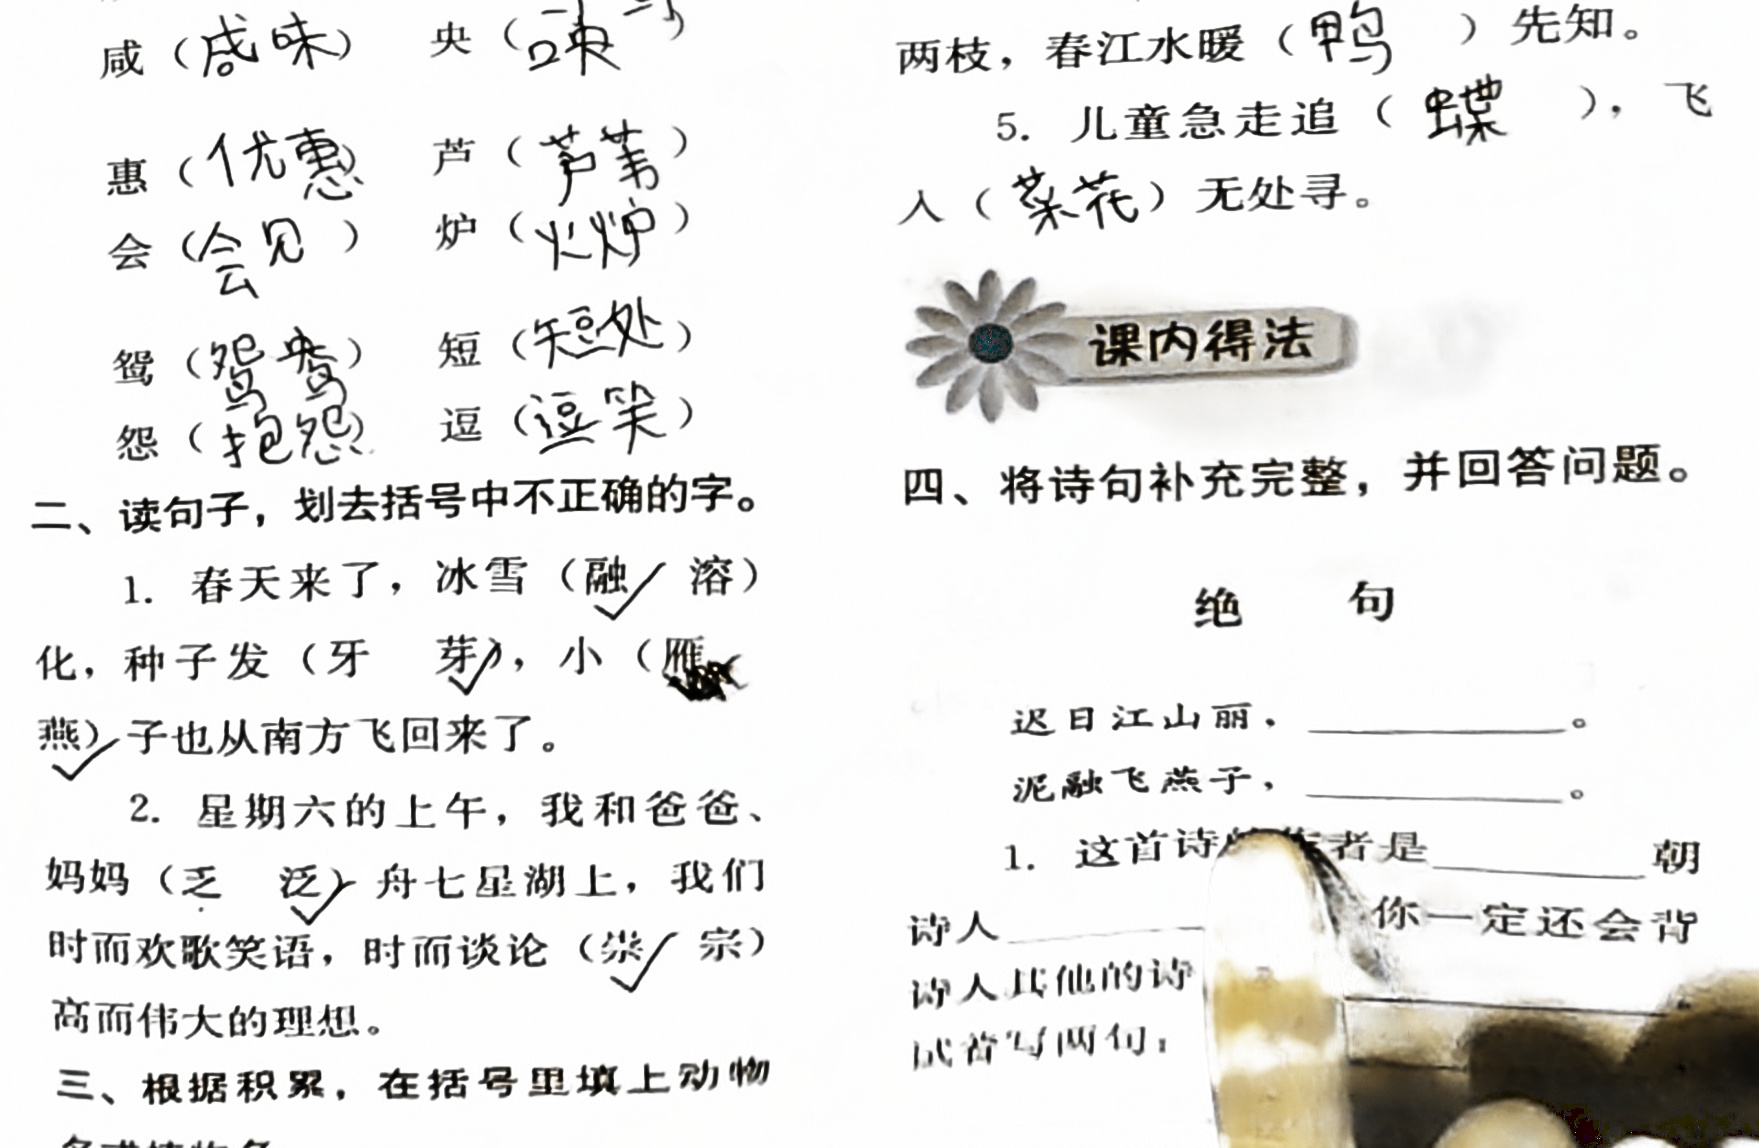 咸（咸味） 央（
惠（优惠） 芦（芦苇）
会（会见） 炉（火炉）
鸳（鸳鸯） 短（短处）
怨（抱怨） 逗（逗笑）
二、读句子，划去括号中不正确的字。
1. 春天来了，冰雪（融 溶）
化，种子发（牙 芽），小（雁
燕）子也从南方飞回来了。
2. 星期六的上午，我和爸爸、
妈妈（乏 泛）舟七星湖上，我们
时而欢歌笑语，时而谈论（崇 宗）
高而伟大的理想。
三、根据积累，在括号里填上动物
两枝，春江水暖（鸭）先知。
5. 儿童急走追（蝶），飞
入（菜花）无处寻。
课内得法
四、将诗句补充完整，并回答问题。
绝 句
迟日江山丽，。
泥融飞燕子，。
1. 这首诗 者是 朝
诗人 你一定还会背
诗人其他的诗
试着写两句：